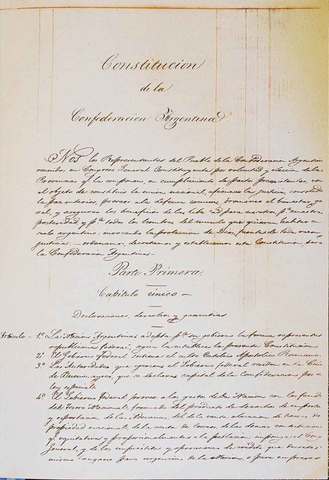 Constitucion
de la
Confederacion Argentina
Nos los Representantes del Pueblo de la Confederacion Argentina
reunidos en Congreso General Constituyente por voluntad y eleccion de las
Provincias que la componen, en cumplimiento de pactos preexistentes, con
el objeto de constituir la union nacional, afianzar la justicia, consolidar
la paz interior, proveer a la defensa comun, promover el bienestar gene
ral, y asegurar los beneficios de la libertad para nosotros, pa nuestra
posteridad y pa todos los hombres del mundo que quieran habitar en el
suelo argentino: invocando la proteccion de Dios, fuente de toda razon y
justicia: ordenamos, decretamos y establecemos esta Constitucion para
la Confederacion Argentina.
Parte Primera.
Capitulo único
Declaraciones, derechos y garantias
Articulo 1º La Nacion Argentina adopta pa su gobierno la forma representativa
republicana federal, segun la establece la presente Constitucion
2º El Gobierno federal sostiene el culto Catolico Apostolico Romano.
3º Las Autoridades que ejercen el Gobierno federal residen en la Ciudad
de Buenos-ayres, que se declara capital de la Confederacion por una
ley especial.
4º El Gobierno federal provee a los gastos de la Nacion con los fondos
del Tesoro Nacional, formado del producto de derechos de importacion
y esportacion de las Aduanas,
propiedad nacional, de la renta de Correos, de las demas contribuciones
que equitativa y proporcionalmente a la poblacion imponga el Congreso
General, y de los empréstitos y operaciones de credito que decrete el
mismo Congreso para urgencias de la Nacion o para empresas